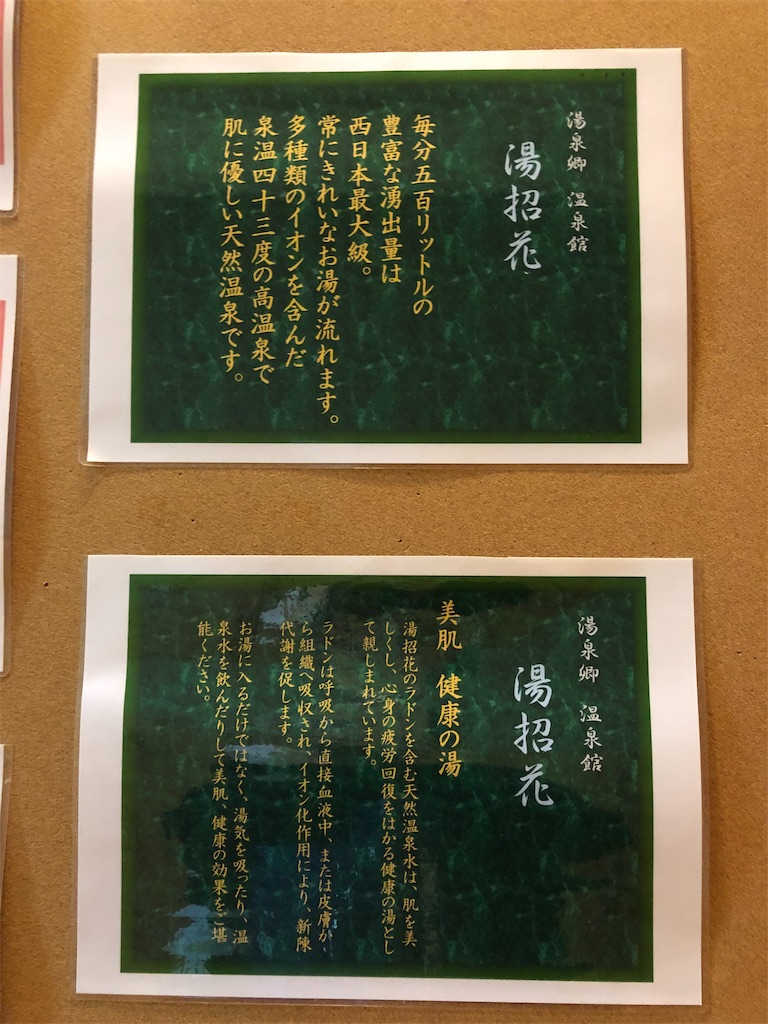 湯泉郷 温泉館
湯招花
毎分五百リットルの
豊富な湧出量は
西日本最大級。
常にきれいなお湯が流れます。
多種類のイオンを含んだ
泉温四十三度の高温泉で
肌に優しい天然温泉です。
湯泉郷 温泉館
湯招花
美肌 健康の湯
湯招花のラドンを含む天然温泉水は、肌を美
しくし、心身の疲労回復をはかる健康の湯とし
て親しまれています。
ラドンは呼吸から直接血液中、または皮膚か
ら組織へ吸収され、イオン化作用により、新陳
代謝を促します。
お湯に入るだけではなく、湯気を吸ったり、温
泉水を飲んだりして美肌、健康の効果をご堪
能ください。